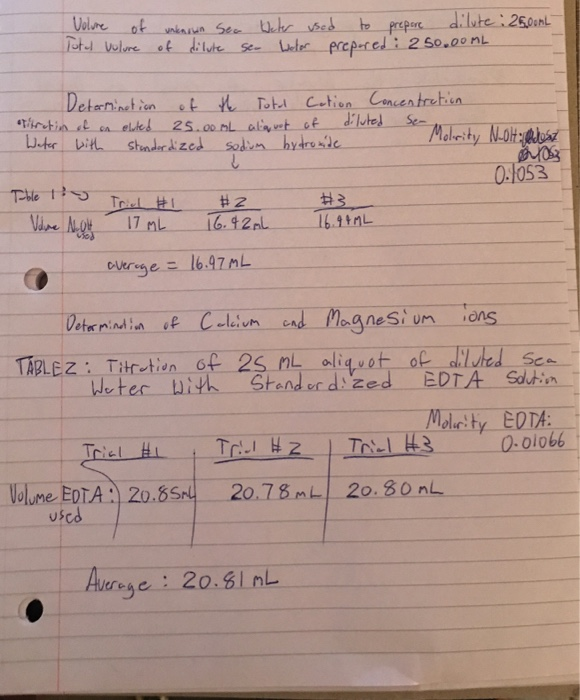 Volume of unknown Sea Water used to prepare dilute: 25.00mL
Total volume of dilute sea water prepared: 250.00mL
Determination of the Total Cation Concentration
Titration of an eluted 25.00mL aliquot of diluted Sea
Water with standardized sodium hydroxide
Molarity NaOH:
0.1053
Table 1:
Trial #1 #2 #3
Volume NaOH used 17 mL 16.92mL 16.99mL
average = 16.97mL
Determination of Calcium and Magnesium ions
TABLE 2: Titration of 25 mL aliquot of diluted Sea
Water with Standardized EDTA Solution
Molarity EDTA:
0.01066
Trial #1 Trial #2 Trial #3
Volume EDTA: 20.85mL 20.78mL 20.80mL
used
Average: 20.81mL